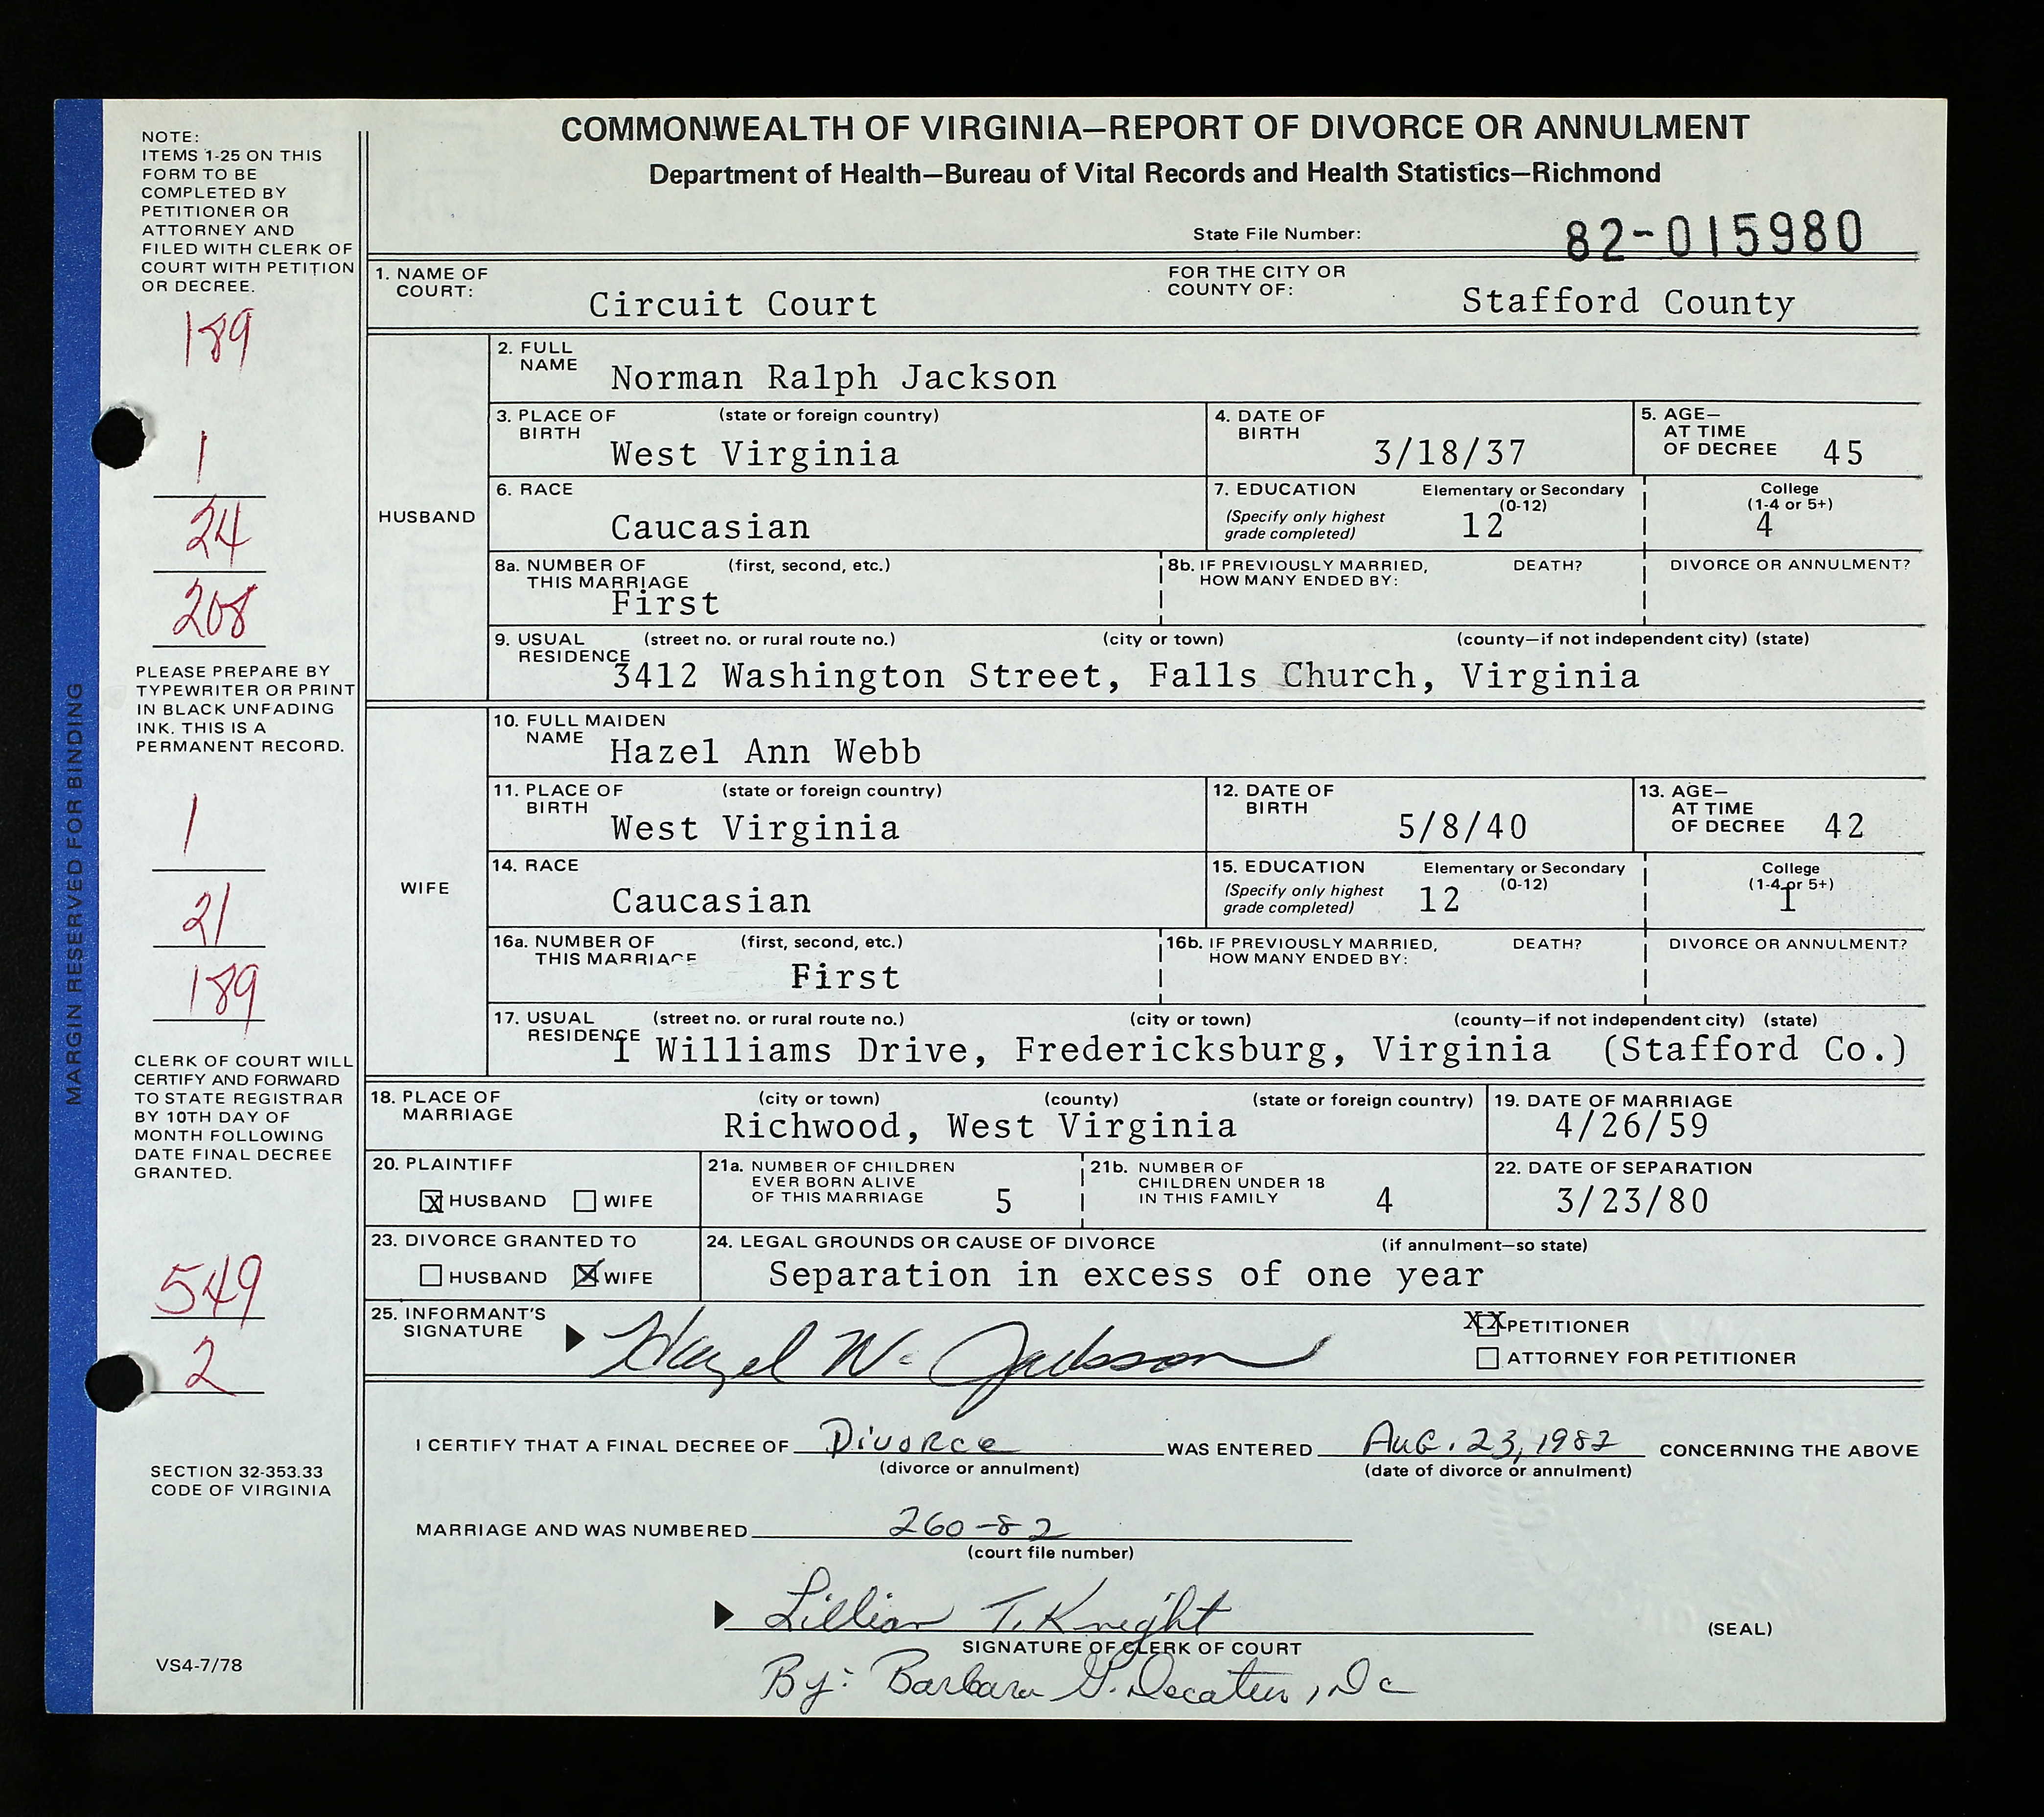 COMMONWEALTH OF VIRGINIA—REPORT OF DIVORCE OR ANNULMENT
Department of Health—Bureau of Vital Records and Health Statistics—Richmond
State File Number: 82-015980
NOTE:
ITEMS 1-25 ON THIS
FORM TO BE
COMPLETED BY
PETITIONER OR
ATTORNEY AND
FILED WITH CLERK OF
COURT WITH PETITION
OR DECREE.
189
1
24
208
PLEASE PREPARE BY
TYPEWRITER OR PRINT
IN BLACK UNFADING
INK. THIS IS A
PERMANENT RECORD.
1
21
189
CLERK OF COURT WILL
CERTIFY AND FORWARD
TO STATE REGISTRAR
BY 10TH DAY OF
MONTH FOLLOWING
DATE FINAL DECREE
GRANTED.
549
2
SECTION 32-353.33
CODE OF VIRGINIA
VS4-7/78
MARGIN RESERVED FOR BINDING
1. NAME OF
COURT: Circuit Court
FOR THE CITY OR
COUNTY OF: Stafford County
HUSBAND
2. FULL
NAME Norman Ralph Jackson
3. PLACE OF (state or foreign country)
BIRTH West Virginia
4. DATE OF
BIRTH 3/18/37
5. AGE—
AT TIME
OF DECREE 45
6. RACE
Caucasian
7. EDUCATION Elementary or Secondary College
(Specify only highest (0-12) (1-4 or 5+)
grade completed) 12 4
8a. NUMBER OF (first, second, etc.)
THIS MARRIAGE
First
8b. IF PREVIOUSLY MARRIED, DEATH? DIVORCE OR ANNULMENT?
HOW MANY ENDED BY:
9. USUAL (street no. or rural route no.) (city or town) (county—if not independent city) (state)
RESIDENCE
3412 Washington Street, Falls Church, Virginia
WIFE
10. FULL MAIDEN
NAME Hazel Ann Webb
11. PLACE OF (state or foreign country)
BIRTH West Virginia
12. DATE OF
BIRTH 5/8/40
13. AGE—
AT TIME
OF DECREE 42
14. RACE
Caucasian
15. EDUCATION Elementary or Secondary College
(Specify only highest (0-12) (1-4 or 5+)
grade completed) 12 1
16a. NUMBER OF (first, second, etc.)
THIS MARRIAGE
First
16b. IF PREVIOUSLY MARRIED, DEATH? DIVORCE OR ANNULMENT?
HOW MANY ENDED BY:
17. USUAL (street no. or rural route no.) (city or town) (county—if not independent city) (state)
RESIDENCE
1 Williams Drive, Fredericksburg, Virginia (Stafford Co.)
18. PLACE OF (city or town) (county) (state or foreign country)
MARRIAGE Richwood, West Virginia
19. DATE OF MARRIAGE
4/26/59
20. PLAINTIFF
X HUSBAND WIFE
21a. NUMBER OF CHILDREN
EVER BORN ALIVE
OF THIS MARRIAGE 5
21b. NUMBER OF
CHILDREN UNDER 18
IN THIS FAMILY 4
22. DATE OF SEPARATION
3/23/80
23. DIVORCE GRANTED TO
HUSBAND X WIFE
24. LEGAL GROUNDS OR CAUSE OF DIVORCE (if annulment—so state)
Separation in excess of one year
25. INFORMANT'S
SIGNATURE Hazel W. Jackson
XX PETITIONER
ATTORNEY FOR PETITIONER
I CERTIFY THAT A FINAL DECREE OF Divorce WAS ENTERED Aug. 23, 1982 CONCERNING THE ABOVE
(divorce or annulment) (date of divorce or annulment)
MARRIAGE AND WAS NUMBERED 260-82
(court file number)
Lillian T. Knight
SIGNATURE OF CLERK OF COURT (SEAL)
By: Barbara G. Decatur, DC